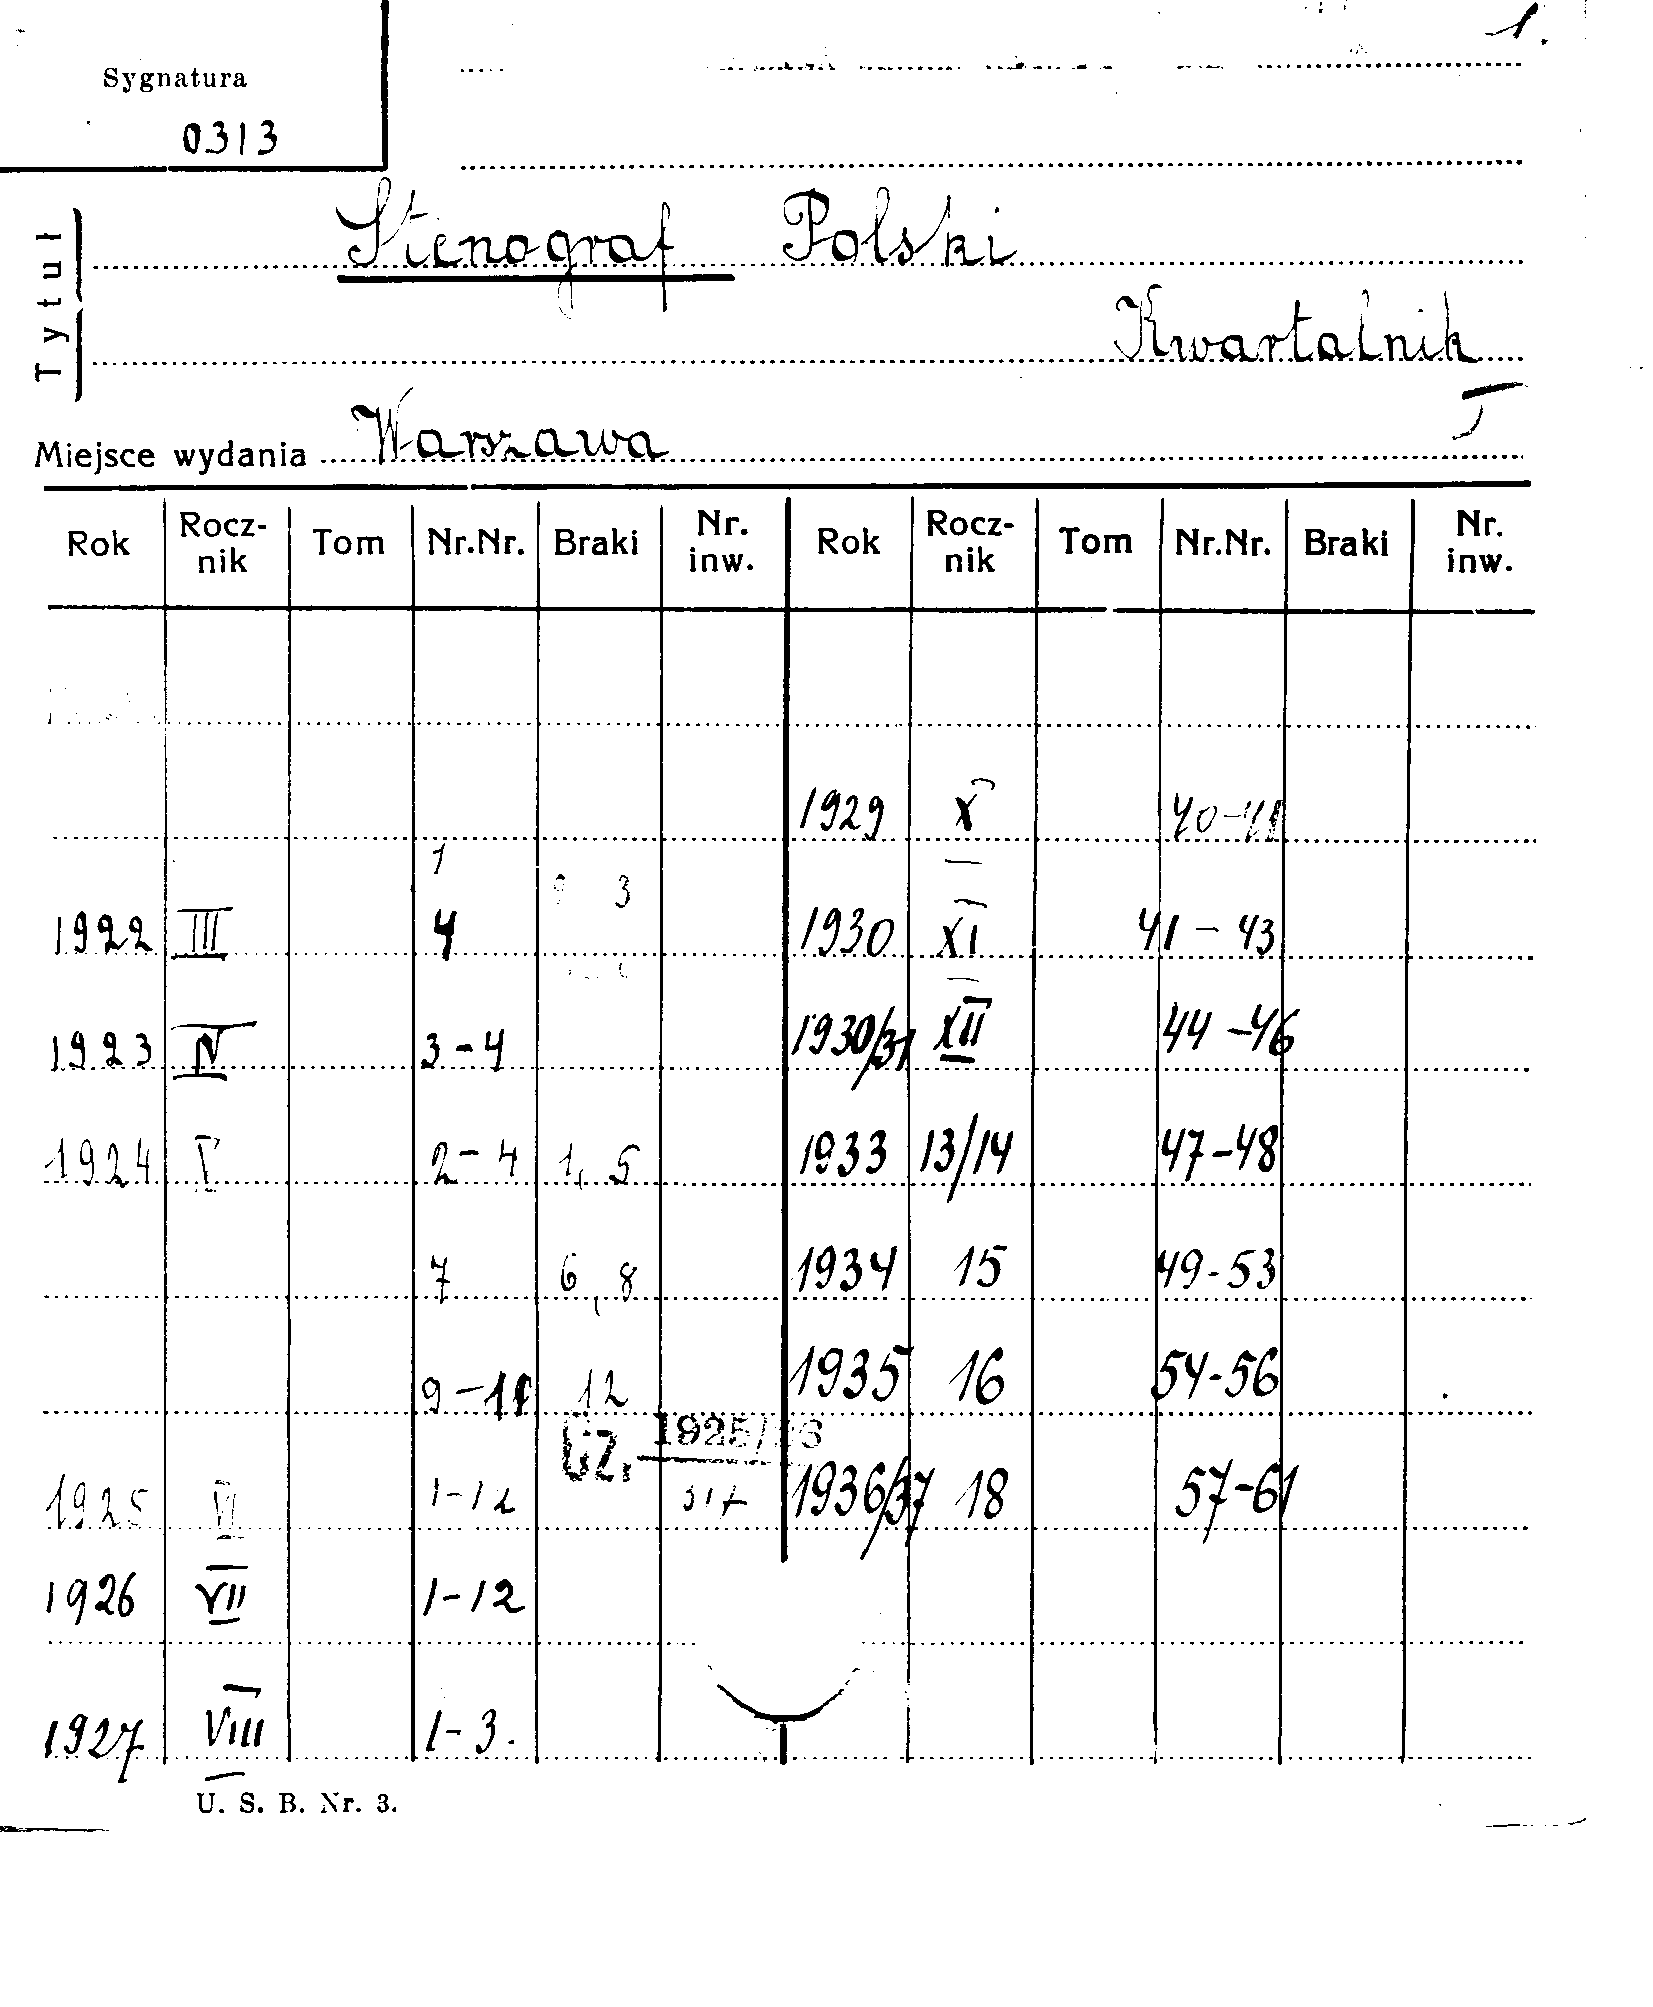 1.
Sygnatura
0313
Tytuł
Stenograf Polski
Kwartalnik
I
Miejsce wydania Warszawa
Rok Rocz-nik Tom Nr.Nr. Braki Nr. inw. Rok Rocz-nik Tom Nr.Nr. Braki Nr. inw.
1929 X 40-41
1 3
1922 III 4 1930 XI 41-43
1923 IV 3-4 1930/31 XII 44-46
1924 V 2-4 1, 5 1933 13/14 47-48
7 6, 8 1934 15 49-53
9-11 12 1935 16 54-56
Cz. 1925/26
1925 VI 1-12 1936/37 18 57-61
1926 VII 1-12
1927 VIII 1-3.
U. S. B. Nr. 3.